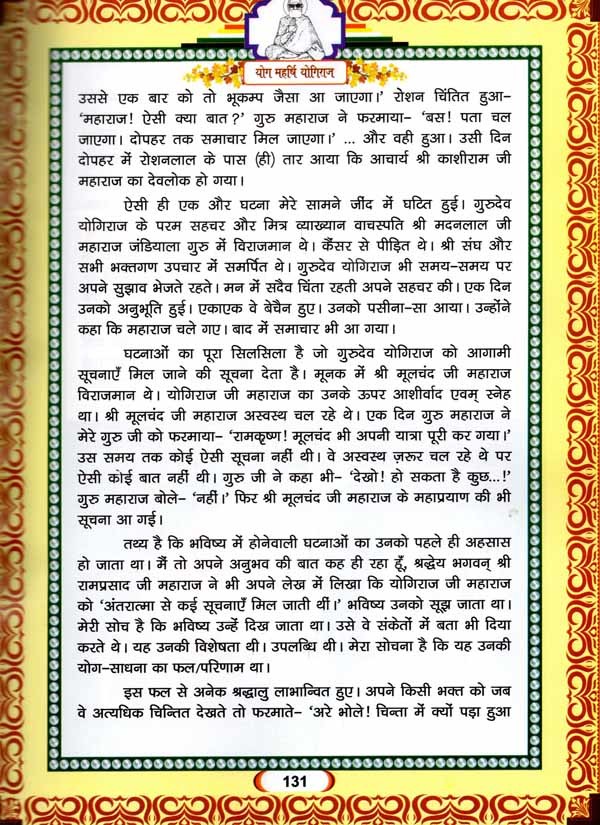 योग महर्षि योगिराज
उससे एक बार को तो भूकम्प जैसा आ जाएगा।’ रोशन चिंतित हुआ–
‘महाराज! ऐसी क्या बात?’ गुरु महाराज ने फरमाया– ‘बस! पता चल
जाएगा। दोपहर तक समाचार मिल जाएगा।’ ... और वही हुआ। उसी दिन
दोपहर में रोशनलाल के पास (ही) तार आया कि आचार्य श्री काशीराम जी
महाराज का देवलोक हो गया।
ऐसी ही एक और घटना मेरे सामने जींद में घटित हुई। गुरुदेव
योगिराज के परम सहचर और मित्र व्याख्यान वाचस्पति श्री मदनलाल जी
महाराज जंडियाला गुरु में विराजमान थे। कैंसर से पीड़ित थे। श्री संघ और
सभी भक्तगण उपचार में समर्पित थे। गुरुदेव योगिराज भी समय–समय पर
अपने सुझाव भेजते रहते। मन में सदैव चिंता रहती अपने सहचर की। एक दिन
उनको अनुभूति हुई। एकाएक वे बेचैन हुए। उनको पसीना–सा आया। उन्होंने
कहा कि महाराज चले गए। बाद में समाचार भी आ गया।
घटनाओं का पूरा सिलसिला है जो गुरुदेव योगिराज को आगामी
सूचनाएँ मिल जाने की सूचना देता है। मूनक में श्री मूलचंद जी महाराज
विराजमान थे। योगिराज जी महाराज का उनके ऊपर आशीर्वाद एवम् स्नेह
था। श्री मूलचंद जी महाराज अस्वस्थ चल रहे थे। एक दिन गुरु महाराज ने
मेरे गुरु जी को फरमाया– ‘रामकृष्ण! मूलचंद भी अपनी यात्रा पूरी कर गया।’
उस समय तक कोई ऐसी सूचना नहीं थी। वे अस्वस्थ ज़रूर चल रहे थे पर
ऐसी कोई बात नहीं थी। गुरु जी ने कहा भी– ‘देखो! हो सकता है कुछ...!’
गुरु महाराज बोले– ‘नहीं।’ फिर श्री मूलचंद जी महाराज के महाप्रयाण की भी
सूचना आ गई।
तथ्य है कि भविष्य में होनेवाली घटनाओं का उनको पहले ही अहसास
हो जाता था। मैं तो अपने अनुभव की बात कह ही रहा हूँ, श्रद्धेय भगवन् श्री
रामप्रसाद जी महाराज ने भी अपने लेख में लिखा कि योगिराज जी महाराज
को ‘अंतरात्मा से कई सूचनाएँ मिल जाती थीं।’ भविष्य उनको सूझ जाता था।
मेरी सोच है कि भविष्य उन्हें दिख जाता था। उसे वे संकेतों में बता भी दिया
करते थे। यह उनकी विशेषता थी। उपलब्धि थी। मेरा सोचना है कि यह उनकी
योग–साधना का फल/परिणाम था।
इस फल से अनेक श्रद्धालु लाभान्वित हुए। अपने किसी भक्त को जब
वे अत्यधिक चिन्तित देखते तो फरमाते– ‘अरे भोले! चिन्ता में क्यों पड़ा हुआ
131